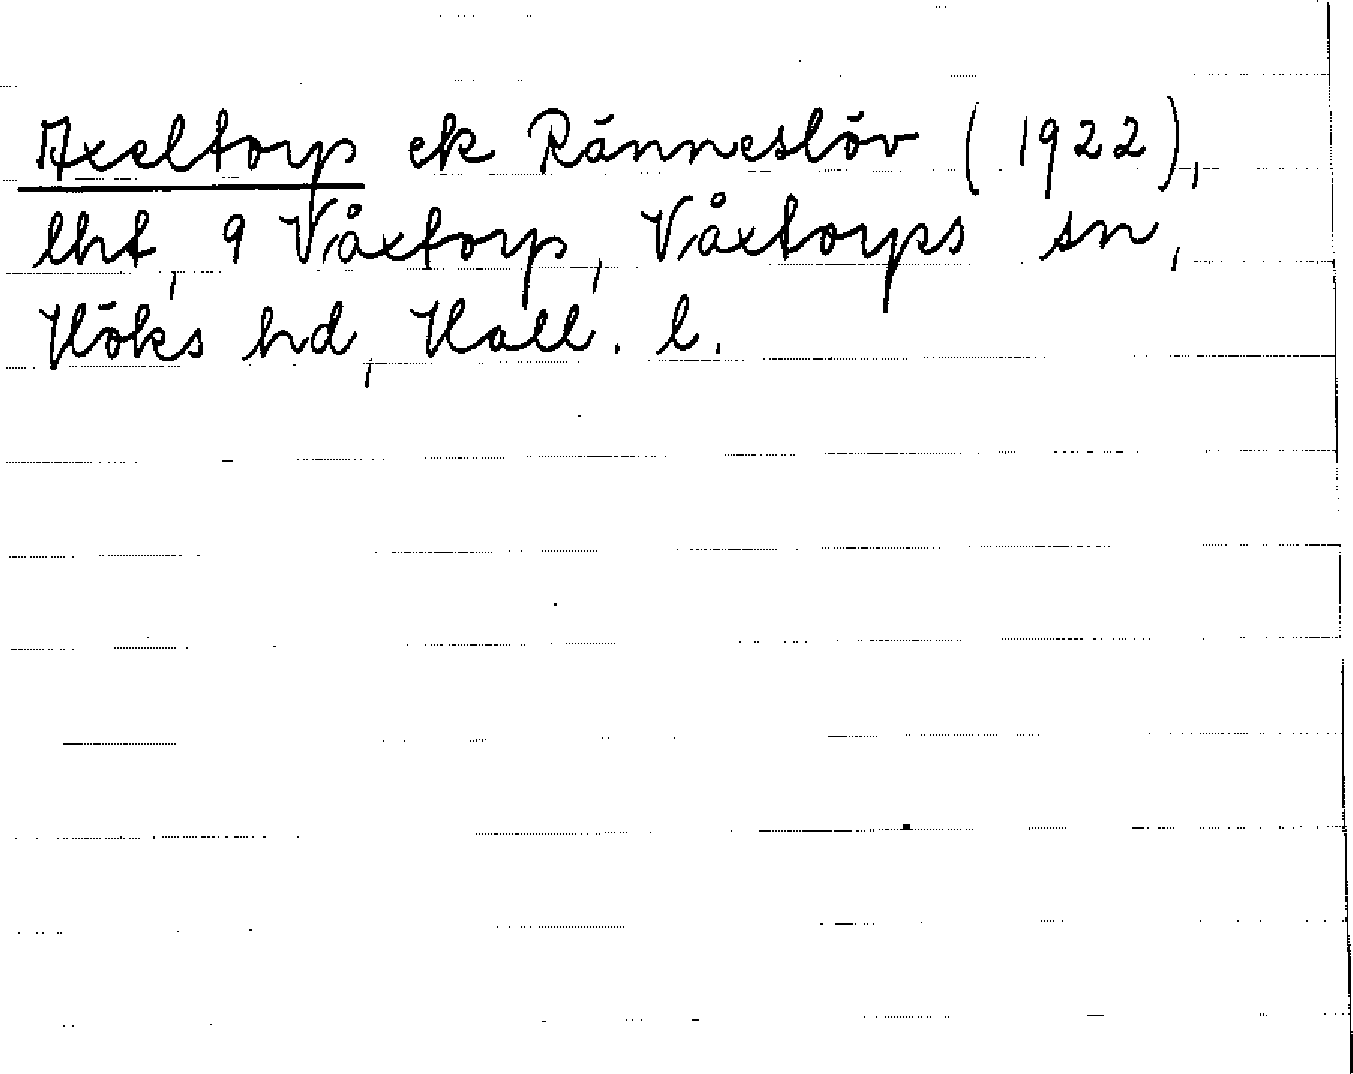 Axeltorp ek Ränneslöv (1922),
lht, 9 Våxtorp, Våxtorps sn,
Höks hd, Hall. l.